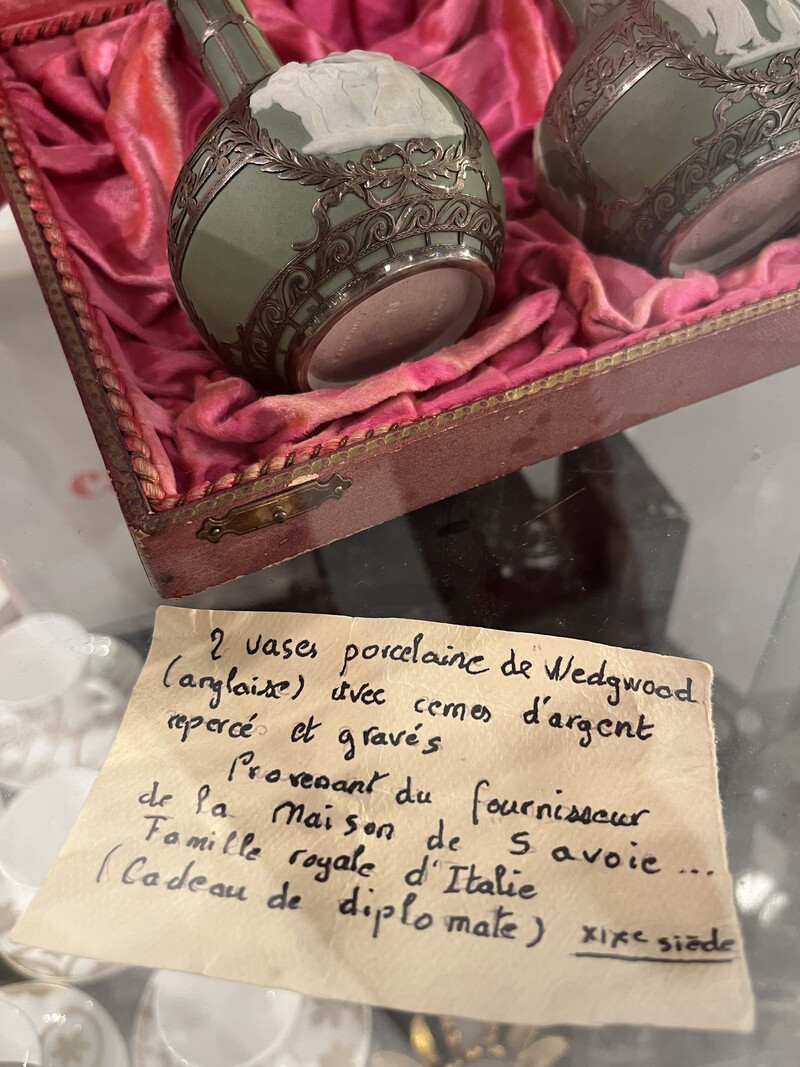 2 vases porcelaine de Wedgwood
(anglaise) avec cernes d'argent
repercé et gravés
Provenant du fournisseur
de la Maison de Savoie ...
Famille royale d'Italie
(Cadeau de diplomate) XIXe siècle